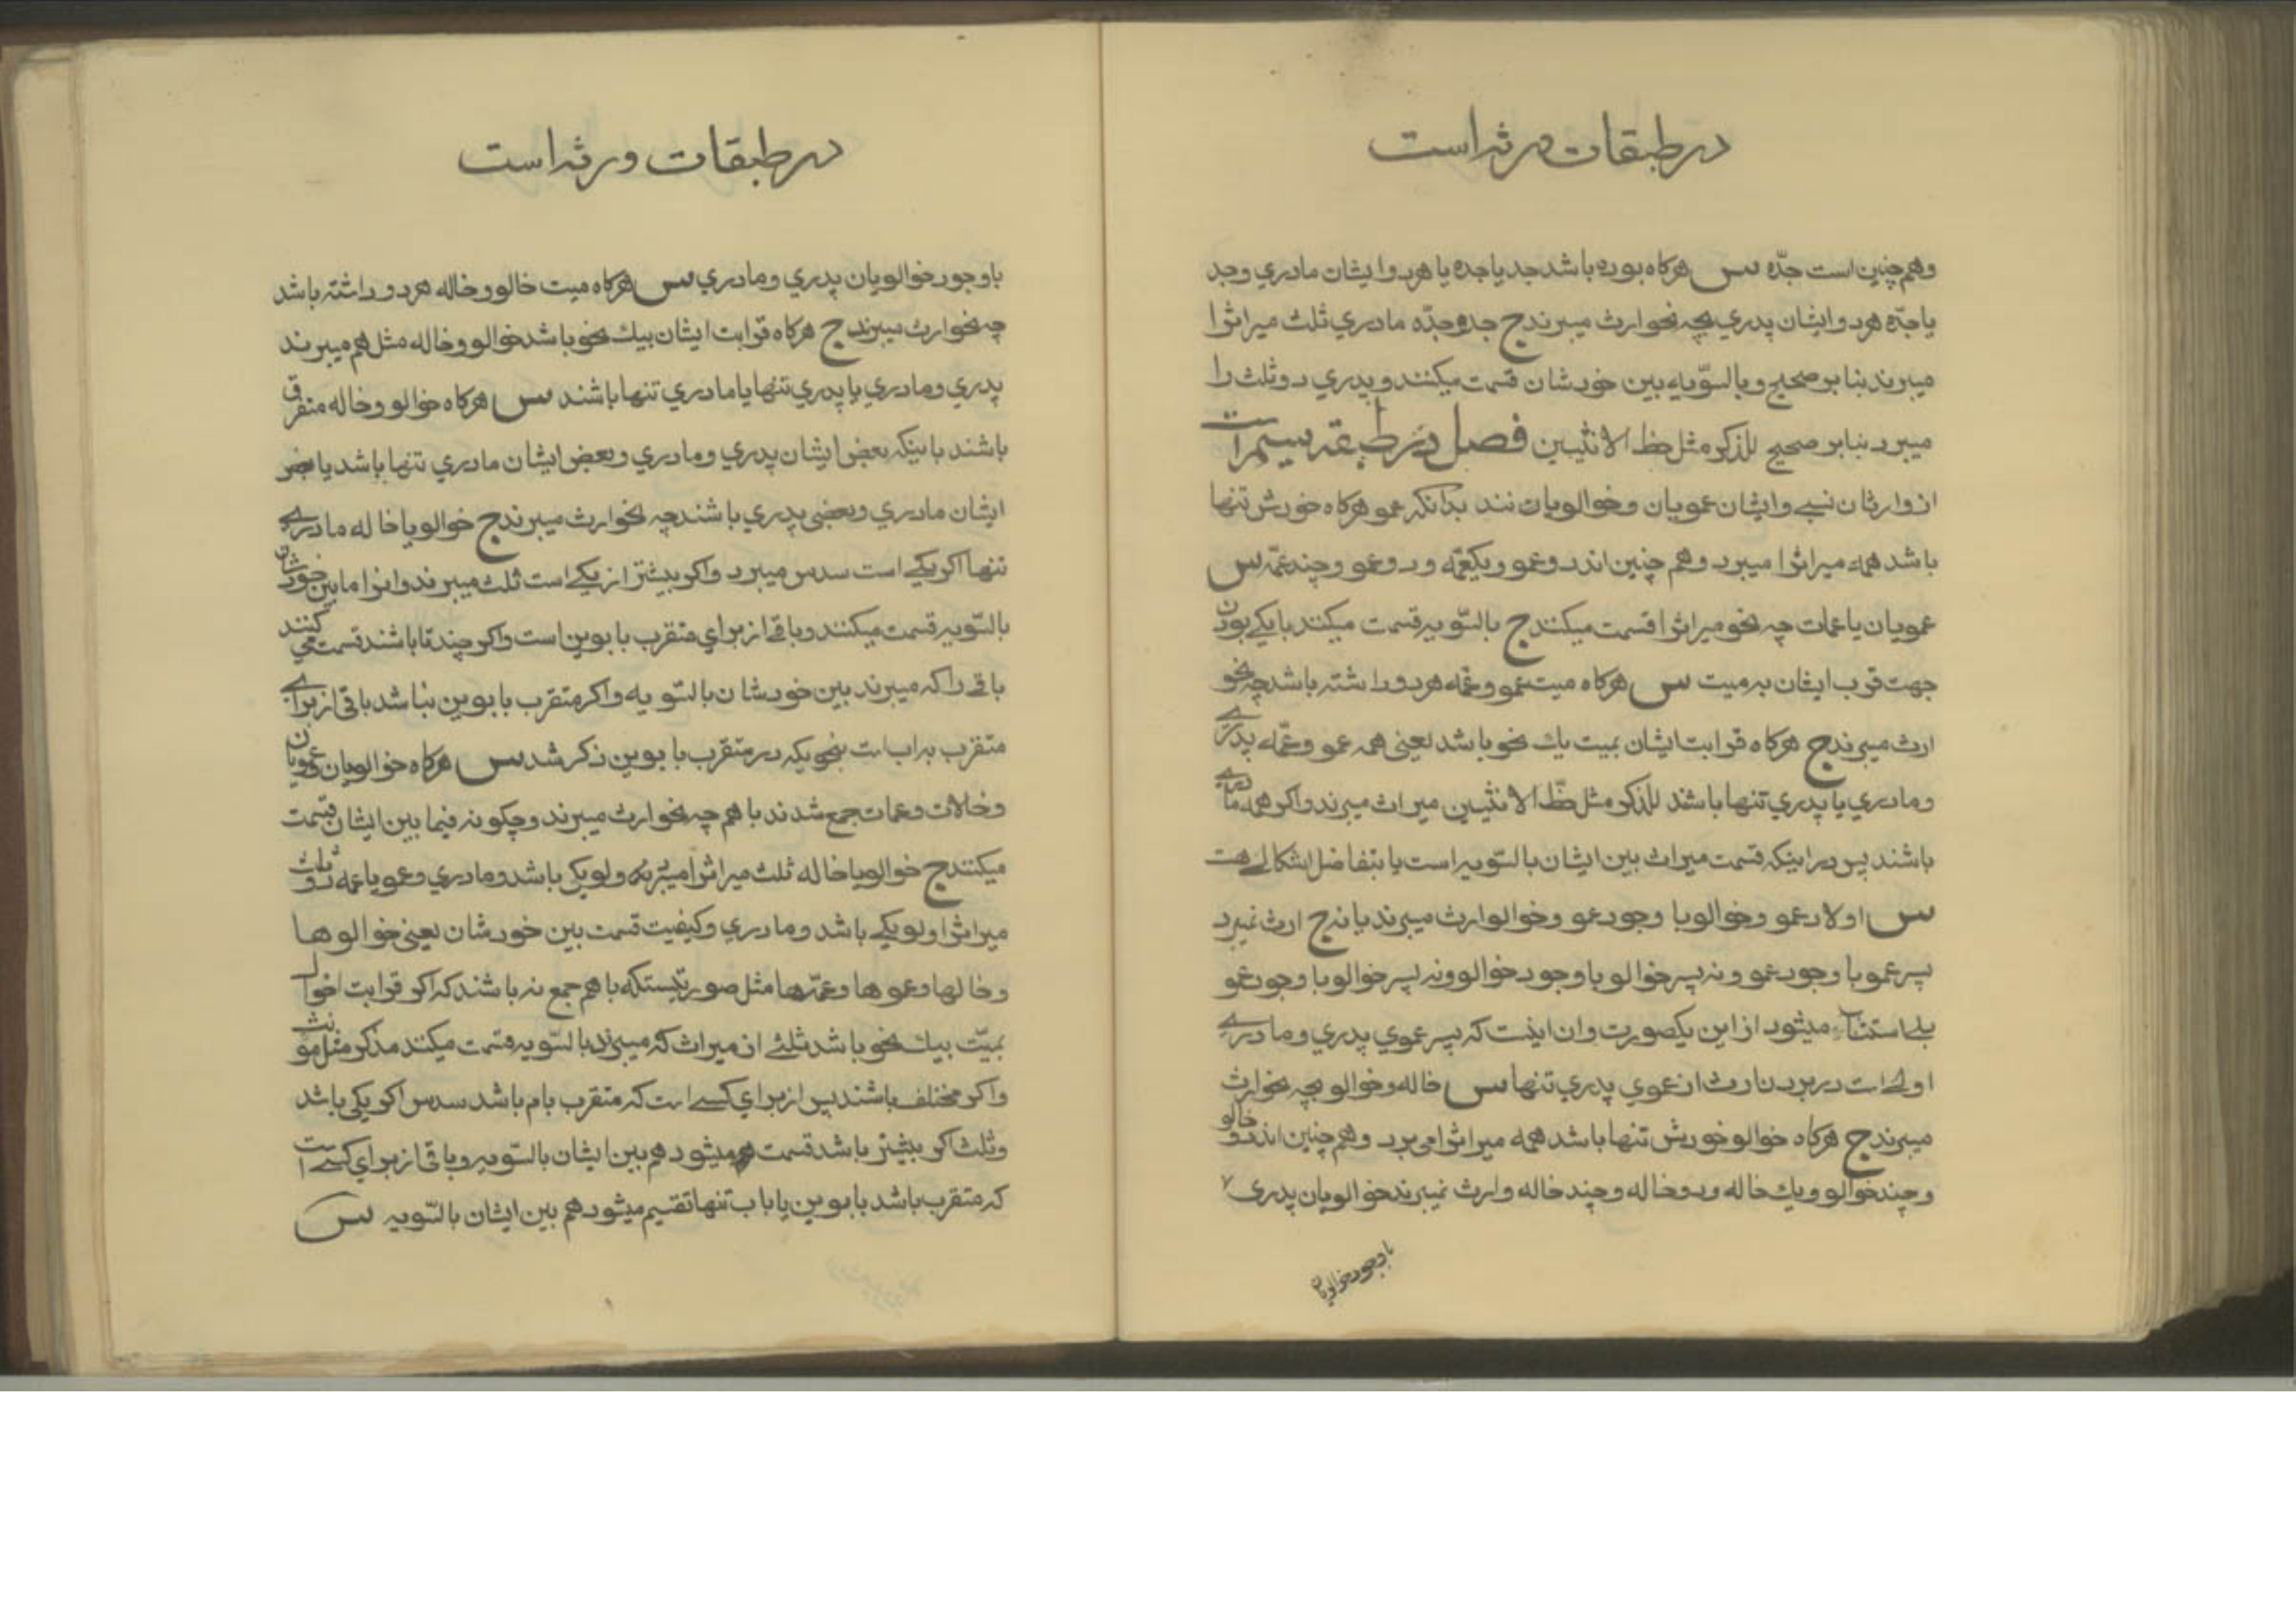 در طبقات ورثه است
و هم چنین است جدّه س هرکاه بوده باشد جد یا جده یا هر دو ایشان مادری وجد
یا جدّه هر دو ایشان پدری بچه نحو ارث میبرند ج جد و جدّه مادری ثلث میراثرا
میبرند بنابر صحیح و بالسّویه بین خودشان قسمت میکنند و پدری دو ثلث را
میبرد بنابر صحیح للذکر مثل حظ الانثیین فصل در طبقه سیم است
از وارثان نسبی و ایشان عمویان و خوالویان‌نند بدانکه عمو هرکاه خودش تنها
باشد همه میراثرا میبرد و هم چنین اند دو عمو و یکعمّه و دو عمو و چند عمّه س
عمویان یا عمات چه نحو میراثرا قسمت میکنند ج بالسّویه قسمت میکنند با یکی بودن
جهت قرب ایشان به میت س هرکاه میت عمو و عمّه هر دو داشته باشد چه نحو
ارث میبرند ج هرکاه قرابت ایشان بمیت یك نحو باشد یعنی همه عمو و عمّه پدری
و مادری یا پدری تنها باشد للذکر مثل حظّ الانثیین میراث میبرند و اکر همه مادری
باشند پس در اینکه قسمت میراث بین ایشان بالسّویه است یا بتفاضل اشکالی هست
س اولاد عمو و خوالو با وجود عمو و خوالو ارث میبرند یا نه ج ارث نمیبرد
پسر عمو با وجود عمو و نه پسر خوالو با وجود خوالو و نه پسر خوالو با وجود عمو
بلی استثناء میشود از این یکصورت و ان اینست که پسر عموی پدری و مادری
اولی است در بردن ارث از عموی پدری تنها س خاله و خوالو بچه نحو ارث
میبرند ج هرکاه خوالو خودش تنها باشد همه میراثرا می برد و هم چنین اند دو خالو
و چند خوالو و یك خاله و دو خاله و چند خاله و ارث نمیبرند خوالویان پدری
با وجود خوالویان
در طبقات ورثه است
با وجود خوالویان پدری و مادری س هرکاه میت خالو و خاله هر دو داشته باشد
چه نحو ارث میبرند ج هرکاه قرابت ایشان بیك نحو باشد خوالو و خاله مثل هم میبرند
پدری و مادری یا پدری تنها یا مادری تنها باشند س هرکاه خوالو و خاله متفرق
باشند باینکه بعض ایشان پدری و مادری و بعض ایشان مادری تنها باشد یا بعض
ایشان مادری و بعضی پدری باشند چه نحو ارث میبرند ج خوالو یا خاله مادری
تنها اکر یکی است سدس میبرد و اکر بیشتر از یکی است ثلث میبرند و انرا مابین خودشان
بالسّویه قسمت میکنند و باقی از برای متقرب بابوین است و اکر چند تا باشند قسمت می کنند
باقی را که میبرند بین خودشان بالسّویه و اکر متقرب بابوین نباشد باقی از برای
متقرب به اب است بنحویکه در متقرب بابوین ذکر شد س هرکاه خوالویان و عمویان
و خالات و عمات جمع شدند با هم چه نحو ارث میبرند و چکونه فیما بین ایشان قسمت
میکنند ج خوالو یا خاله ثلث میراثرا میبرند ولو یکی باشد و مادری و عمو یا عمه دو ثلث
میراثرا ولو یکی باشد و مادری و کیفیت قسمت بین خودشان یعنی خوالو ها
و خالها و عمو ها و عمّه‌ها مثل صورتیستکه با هم جمع نه باشند که اکر قرابت اخوال
بمیّت بیك نحو باشد ثلثی از میراث که میبرند بالسّویه قسمت میکنند مذکر مثل مؤنث
و اکر مختلف باشند پس از برای کسی است که متقرب بام باشد سدس اکر یکی باشد
و ثلث اکر بیشتر باشد قسمت میشود هم بین ایشان بالسّویه و باقی از برای کسی است
که متقرب باشد بابوین یا باب تنها تقسیم میشود هم بین ایشان بالسّویه س